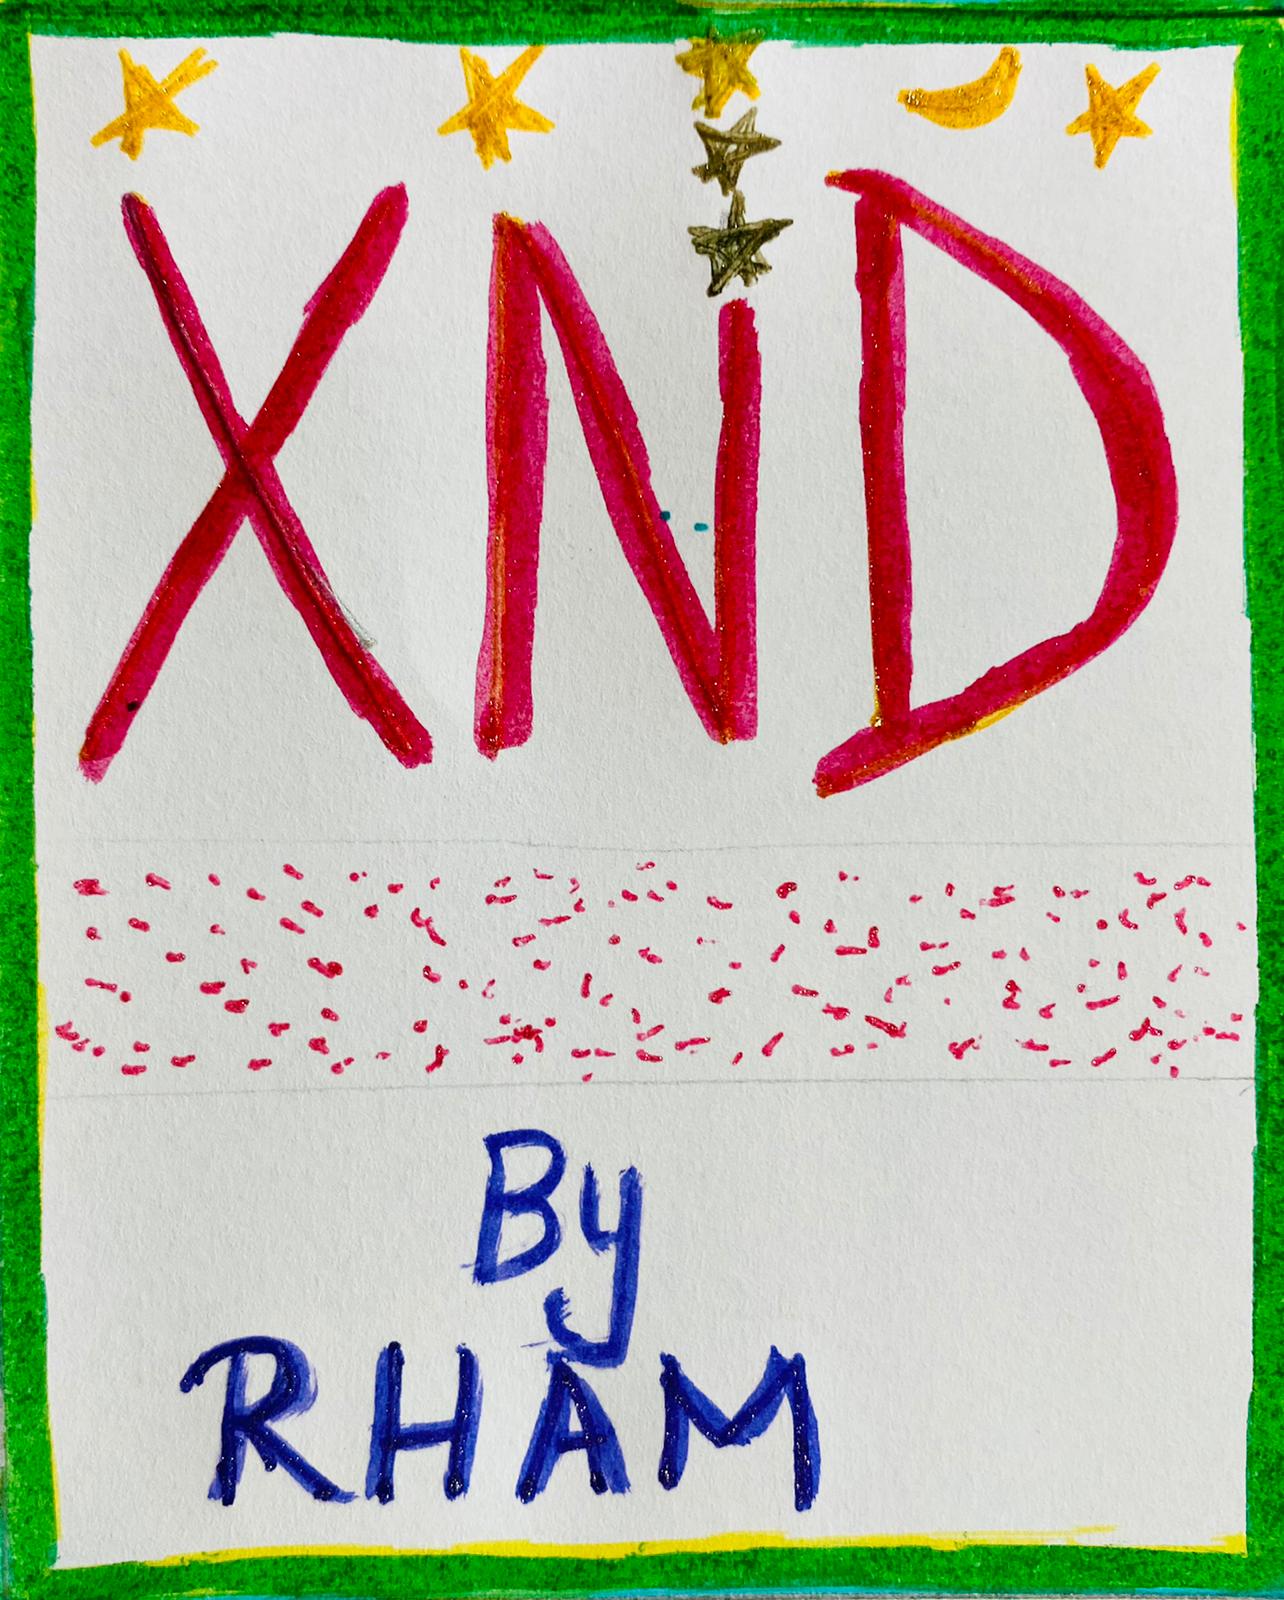 XND
By
RHAM